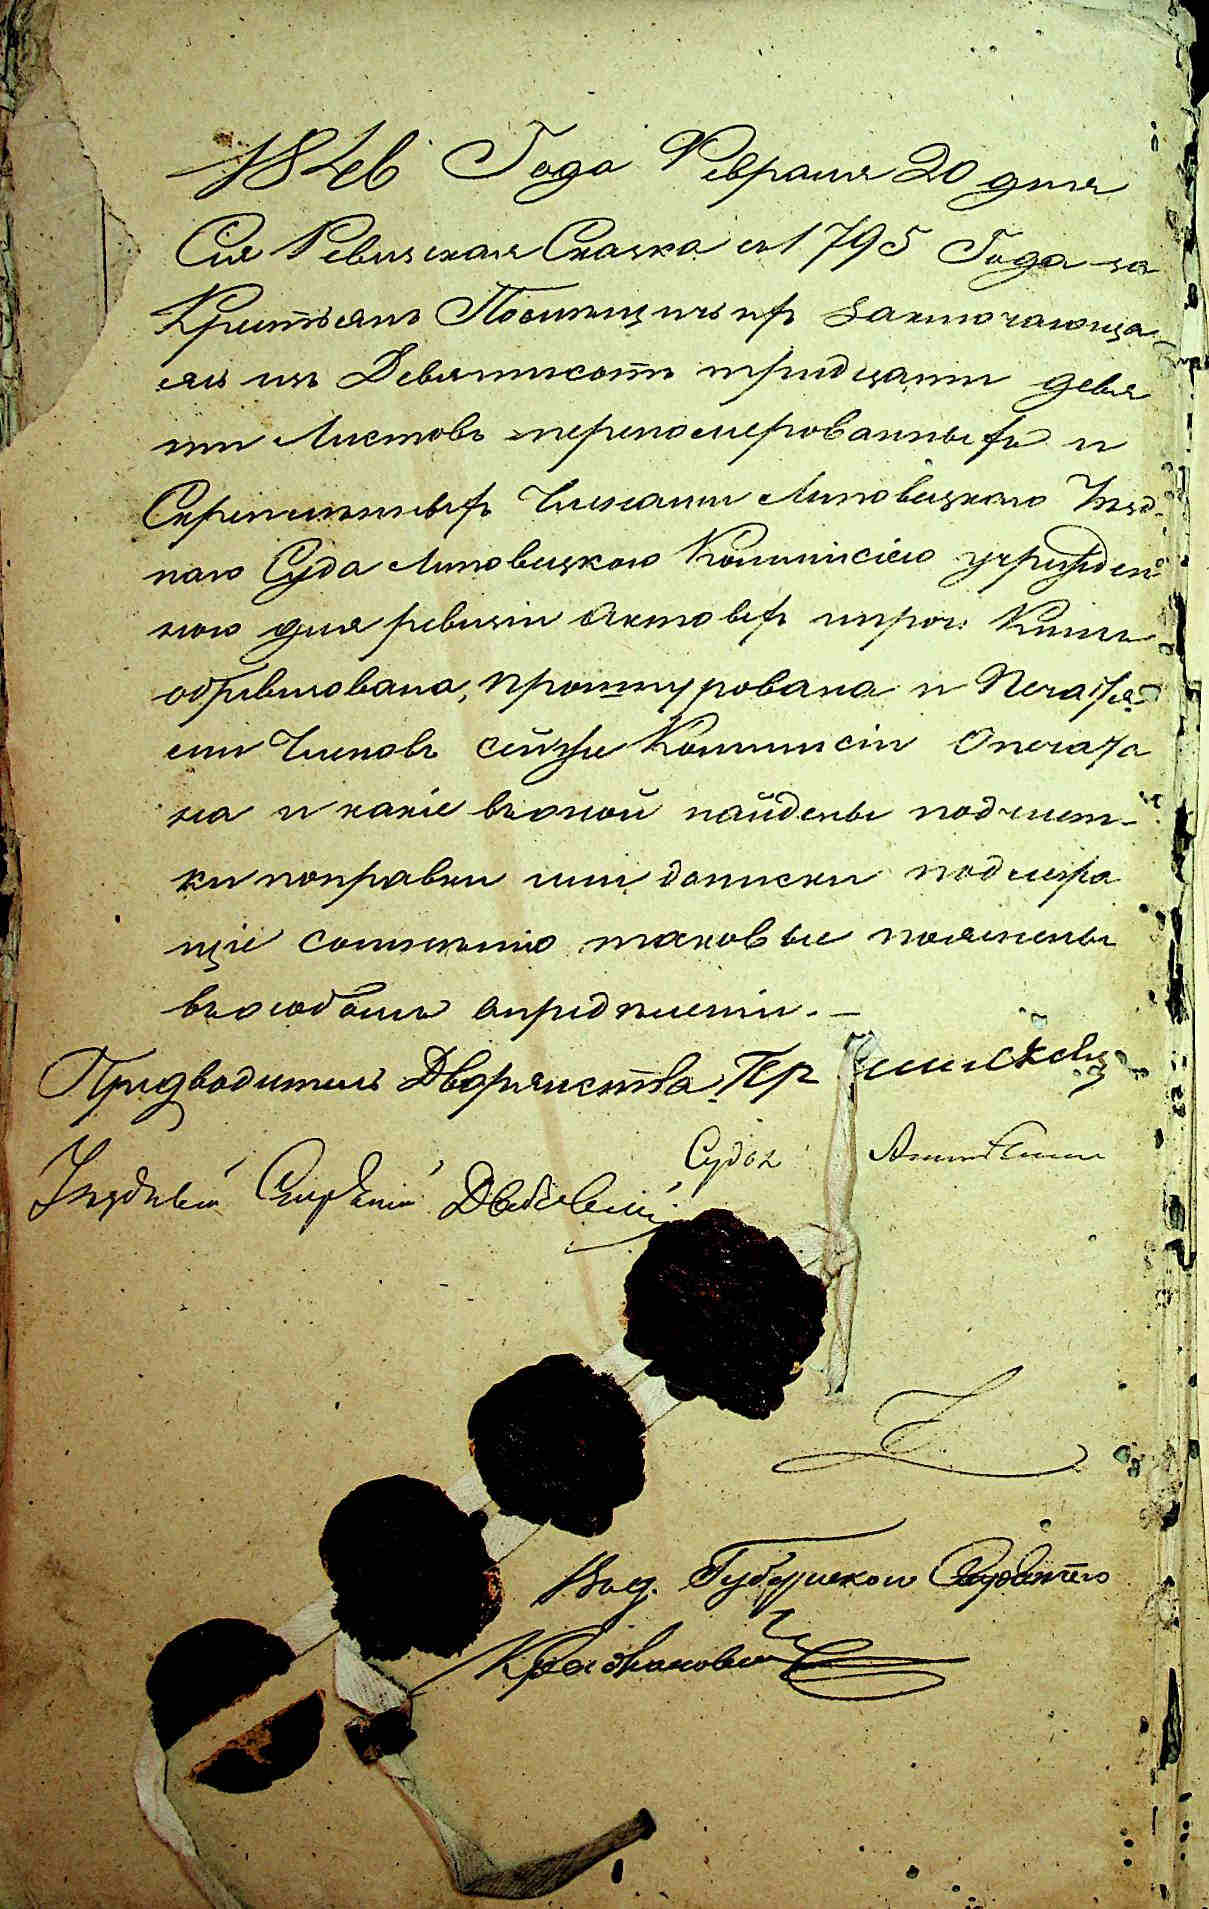 1846 Года Февраля 20 дня
Сія Ревизская Сказка съ 1795 Года за
Крестьянъ Помѣщичьихъ заключающа-
яся изъ Девятисотъ тридцати девя
ти Листовъ перенумерованныхъ и
Скрепленныхъ Членами Липовецкаго Уѣзд-
наго Суда Липовецкою Коммисіею учрежден-
ною для ревизіи Актовыхъ и проч: Книгъ
обревизована, прошнурована и Печатя-
ми Членовъ сей же Коммисіи Опечата
на и какіе въ оной найдены подчист-
ки поправки или дописки подлежа
щіе сомнѣнію таковые пояснены
въ особомъ опредѣленіи. —
Предводитель Дворянства
Судья
Уѣздный Стряпчій
Губернскаго